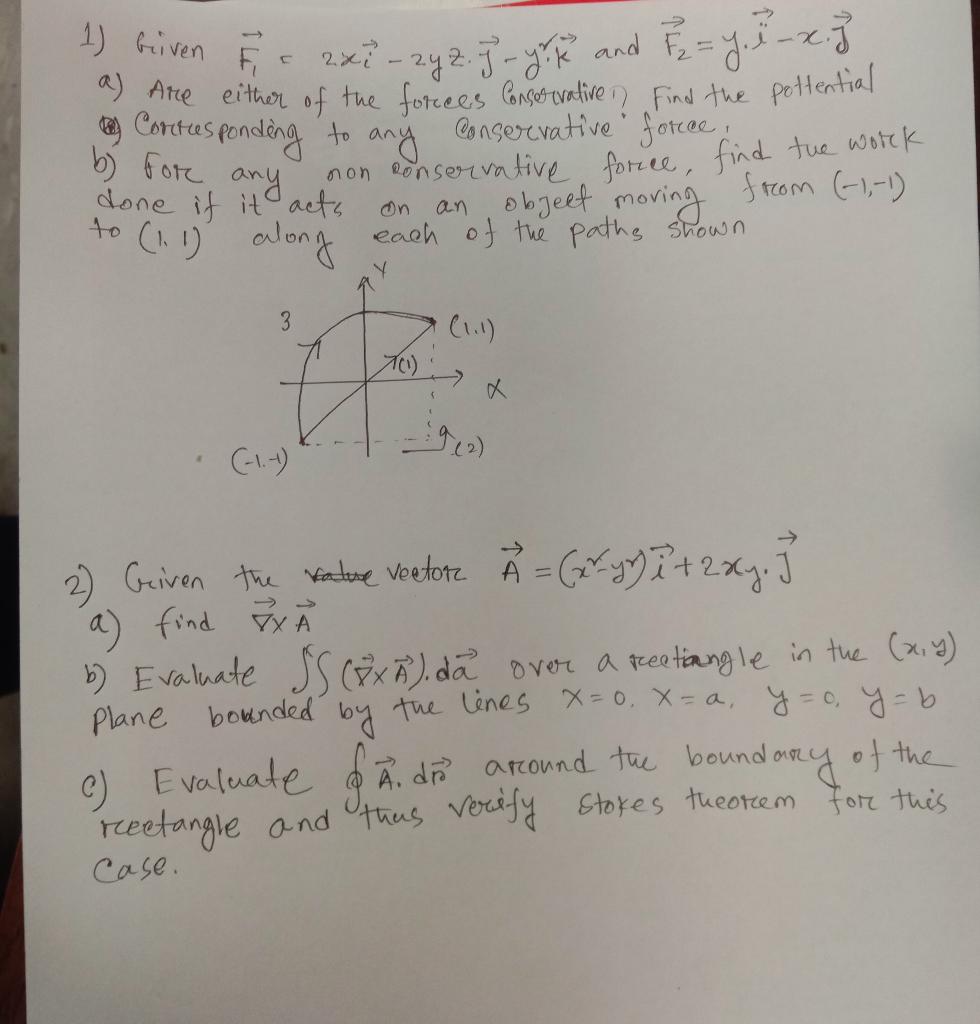 1) Given F₁ = 2xi⃗ - 2yz.j⃗ - y²k⃗ and F⃗₂ = y.i⃗ - x.j⃗
a) Are either of the forces Conservative? Find the pottential
Corresponding to any Conservative force,
b) For any non conservative force, find the work
done if it acts on an object moving from (-1,-1)
to (1.1) along each of the paths shown
Y
3
(1.1)
(1)
x
(-1.-1)
(2)
2) Given the vector A⃗ = (x²-y²)i⃗+2xy.j⃗
a) find ∇⃗×A⃗
b) Evaluate ∫∫(∇⃗×A⃗).da⃗ over a rectangle in the (x,y)
plane bounded by the lines x=0, x=a, y=0, y=b
c) Evaluate ∮A⃗.dr⃗ around the boundary of the
rectangle and thus verify Stokes theorem for this
Case.